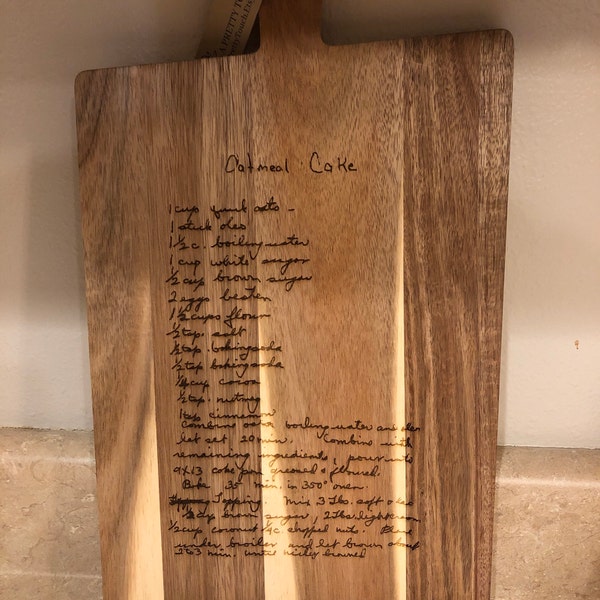 A PRETTY T
Oatmeal Cake
1 cup quick oats -
1 stick oleo
1 1/2 c. boiling water
1 cup white sugar
1/2 cup brown sugar
2 eggs beaten
1 1/2 cups flour
1/2 tsp. salt
1/2 tsp. baking soda
1/2 tsp baking soda
1/4 cup cocoa
1/2 tsp. nutmeg
1 tsp cinnamon
Combine oats boiling water and oleo
let set 20 min. Combine with
remaining ingredients, pour into
9x13 cake pan greased & floured.
Bake 35 min. in 350° oven.
Topping. Mix 3 Tbs. soft oleo
cup brown sugar, 2 Tbs. light cream
1/2 cup coconut 1/4 c. chopped nuts. Place
under broiler and let brown about
2 to 3 min. until nicely browned